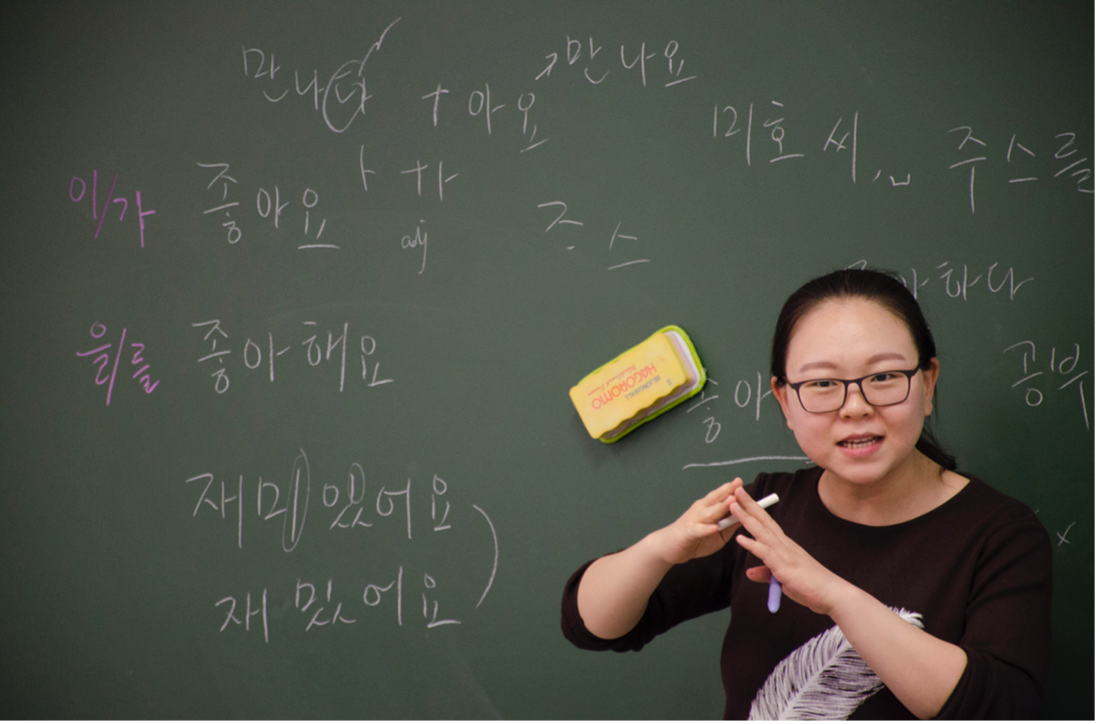 만나다 + 아요 만나요
ㅏ + ㅏ
미호 씨, 주스를
이/가 좋아요 adj
주스
하다
을/를 좋아해요
공부
HAGOROMO
좋아
재미있어요
재밌어요
x